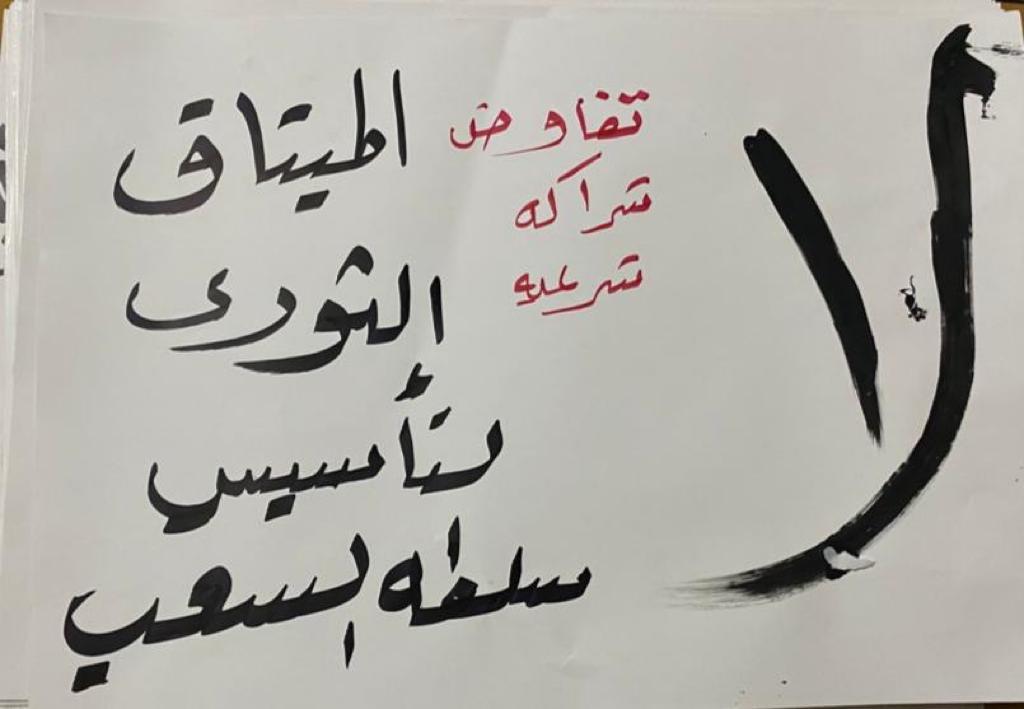 لا
تفاوض
شراكه
شرعيه
الميتاق
الثورى
لتأسيس
سلطه الشعب